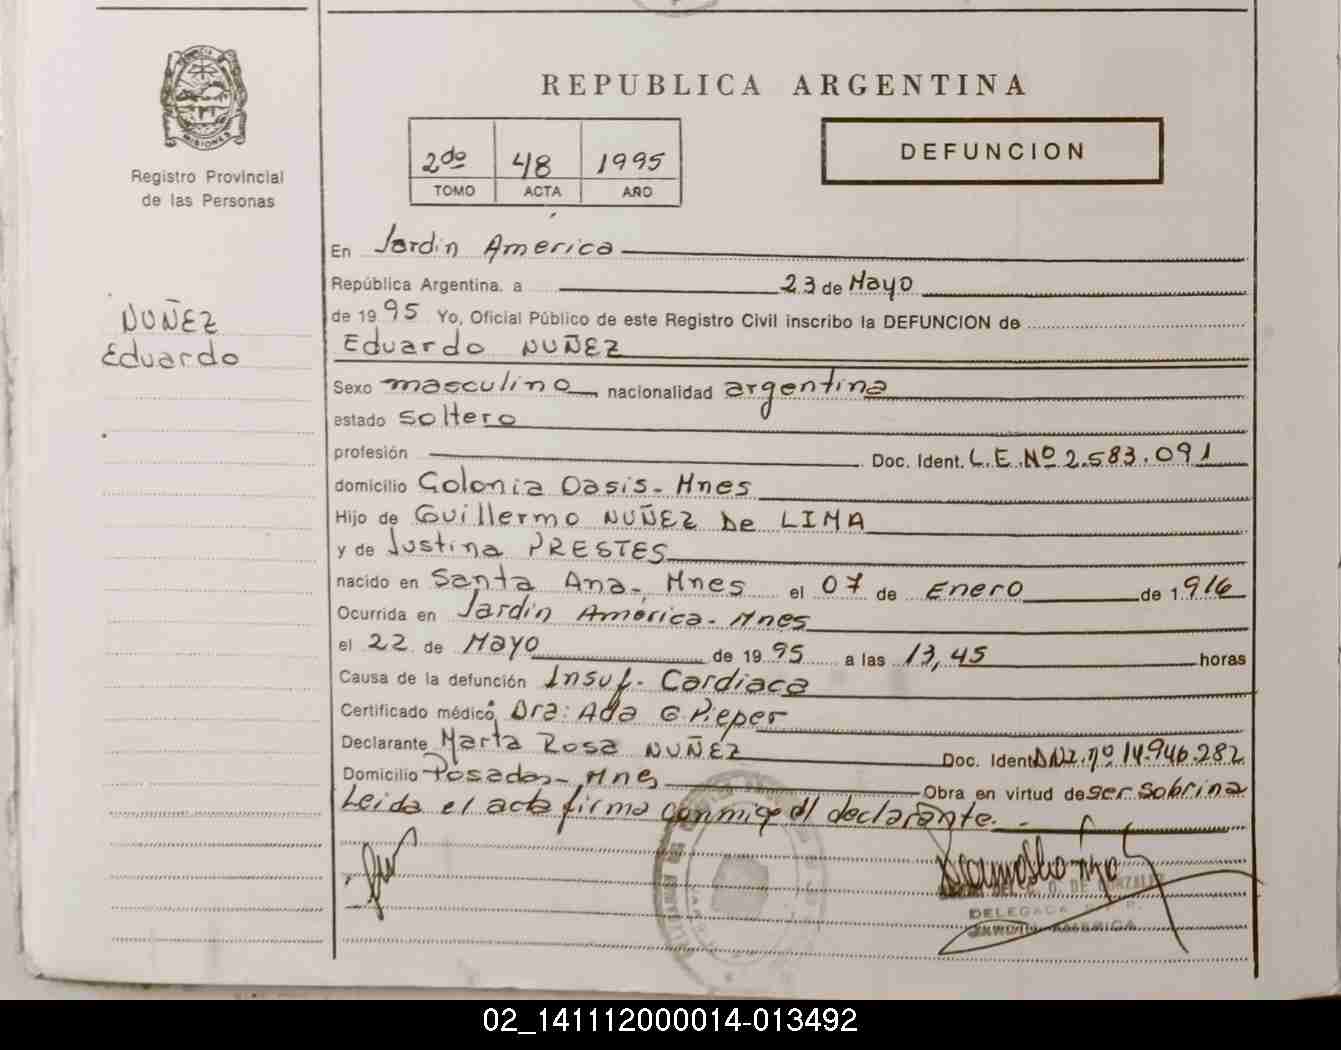 MISIONES
Registro Provincial
de las Personas
NUÑEZ
Eduardo
REPUBLICA ARGENTINA
2do 48 1995
TOMO ACTA AÑO
DEFUNCION
En Jardin America
República Argentina. a 23 de Mayo
de 19 95 Yo, Oficial Público de este Registro Civil inscribo la DEFUNCION de
Eduardo NUÑEZ
Sexo masculino nacionalidad argentina
estado soltero
profesión Doc. Ident. L.E.Nº 2.583.091
domicilio Colonia Oasis - Mnes
Hijo de Guillermo NUÑEZ De LIMA
y de Justina PRESTES
nacido en Santa Ana - Mnes el 07 de Enero de 1.916
Ocurrida en Jardin América - Mnes
el 22 de Mayo de 19 95 a las 13,45 horas
Causa de la defunción Insuf. Cardiaca
Certificado médico Dra: Ada G Pieper
Declarante Marta Rosa NUÑEZ Doc. Ident DNI. nº 14.946.282
Domicilio Posadas - Mnes Obra en virtud de ser sobrina
Leida el acta firma conmigo el declarante. -
DE GONZALEZ
DELEGADA
JARDIN AMERICA
02_141112000014-013492